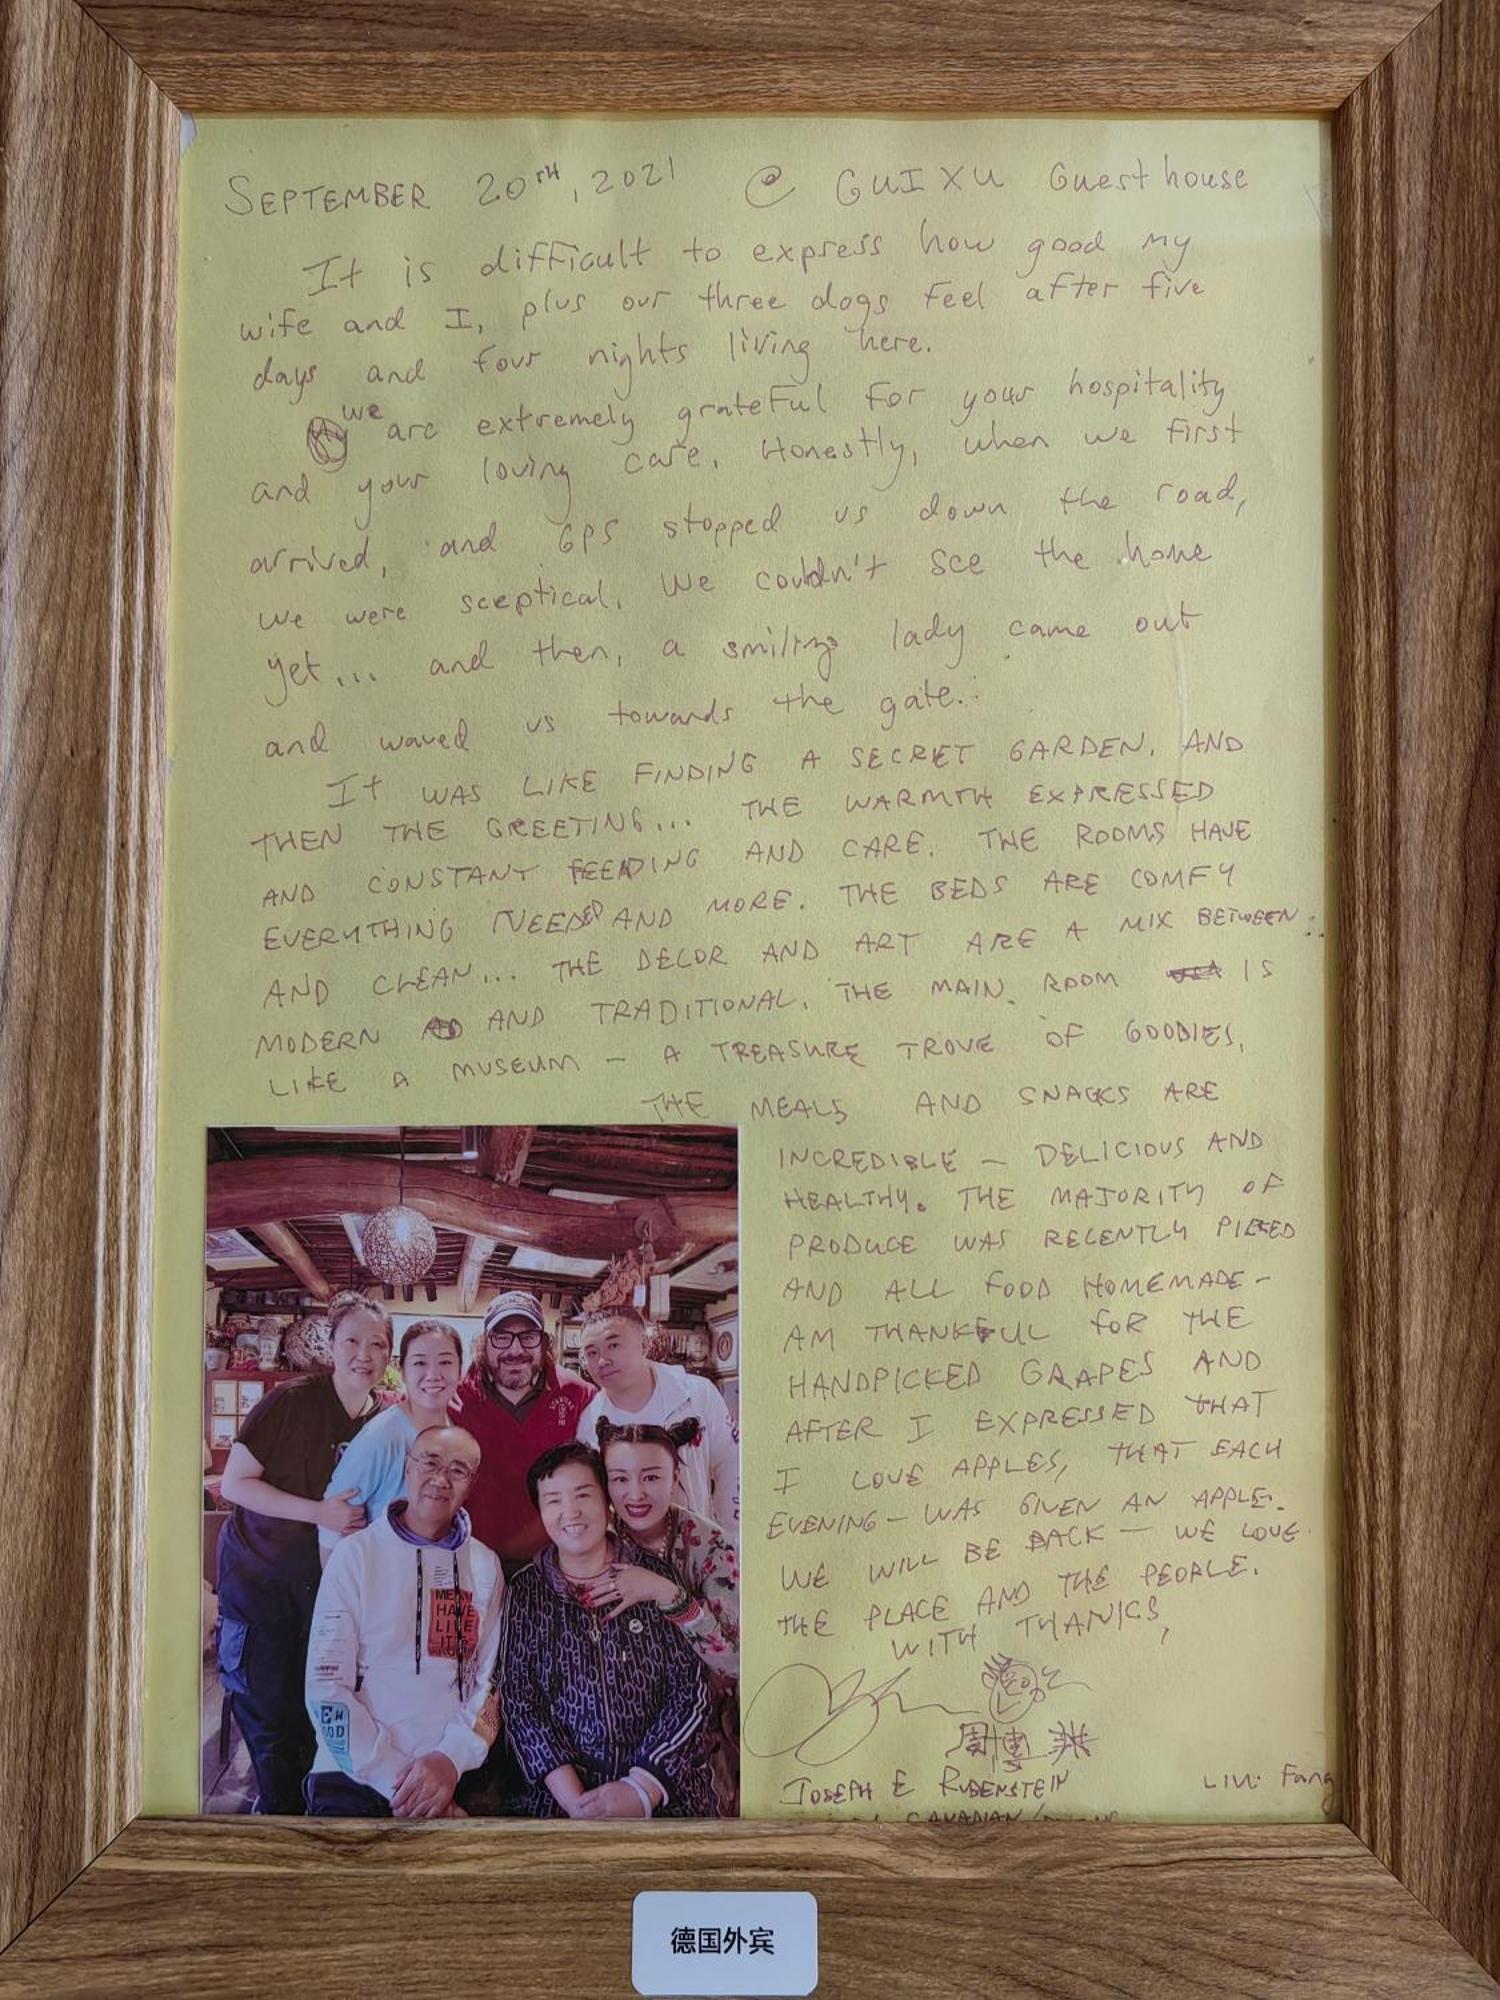 SEPTEMBER 20TH, 2021 @ GUIXU Guesthouse
It is difficult to express how good my
wife and I, plus our three dogs feel after five
days and four nights living here.
we are extremely grateful for your hospitality
and your loving care. Honestly, when we first
arrived, and GPS stopped us down the road,
we were sceptical. We couldn't see the home
yet... and then, a smiling lady came out
and waved us towards the gate..
It WAS LIKE FINDING A SECRET GARDEN. AND
THEN THE GREETING... THE WARMTH EXPRESSED
AND CONSTANT FEEDING AND CARE. THE ROOMS HAVE
EVERYTHING NEEDED AND MORE. THE BEDS ARE COMFY
AND CLEAN... THE DECOR AND ART ARE A MIX BETWEEN
MODERN AND TRADITIONAL. THE MAIN ROOM IS
LIKE A MUSEUM - A TREASURE TROVE OF GOODIES.
THE MEALS AND SNACKS ARE
INCREDIBLE - DELICIOUS AND
HEALTHY. THE MAJORITY OF
PRODUCE WAS RECENTLY PICKED
AND ALL FOOD HOMEMADE -
AM THANKFUL FOR THE
HANDPICKED GRAPES AND
AFTER I EXPRESSED THAT
I LOVE APPLES, THAT EACH
EVENING - WAS GIVEN AN APPLE.
WE WILL BE BACK - WE LOVE
THE PLACE AND THE PEOPLE.
WITH THANKS,
周博
JOSEPH E RUBENSTEIN
Fang
CANADIAN
HAVE
德国外宾